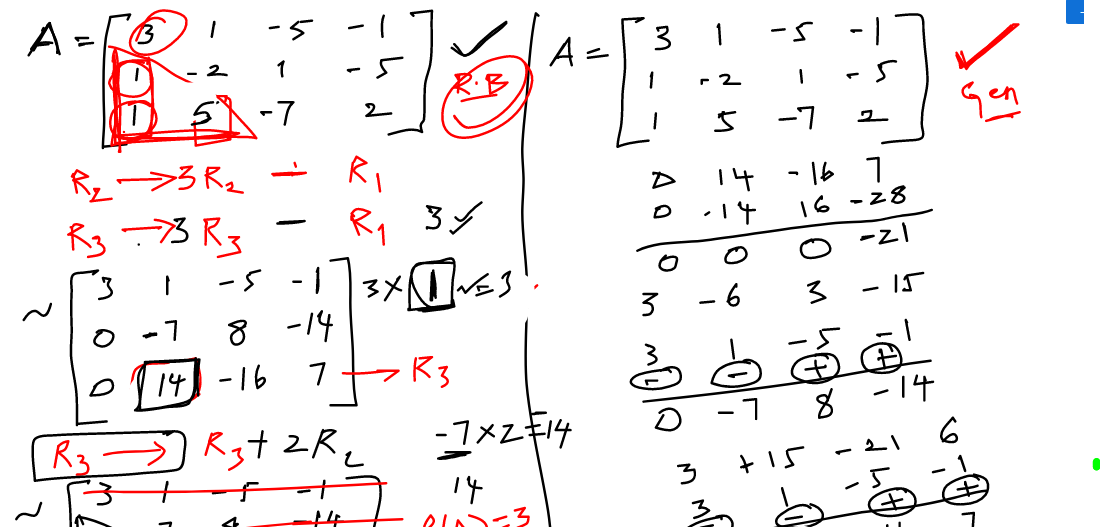 A = [ 3 1 -5 -1 ] ✓
1 -2 1 -5
1 5 -7 2
R.B
R2 → 3R2 - R1
R3 → 3R3 - R1 3 ✓
~ [ 3 1 -5 -1 ] 3 × 1 ✓ = 3
0 -7 8 -14
0 14 -16 7 → R3
R3 → R3 + 2R2 -7 × 2 = 14
14
~ [ 3 1 -5 -1 ]
-14
=3
A = [ 3 1 -5 -1 ] ✓
1 -2 1 -5
1 5 -7 2
Gen
0 14 -16 7
0 -14 16 -28
0 0 0 -21
3 -6 3 -15
3 1 -5 -1
- - + +
0 -7 8 -14
3 +15 -21 6
3 1 -5 -1
- + +